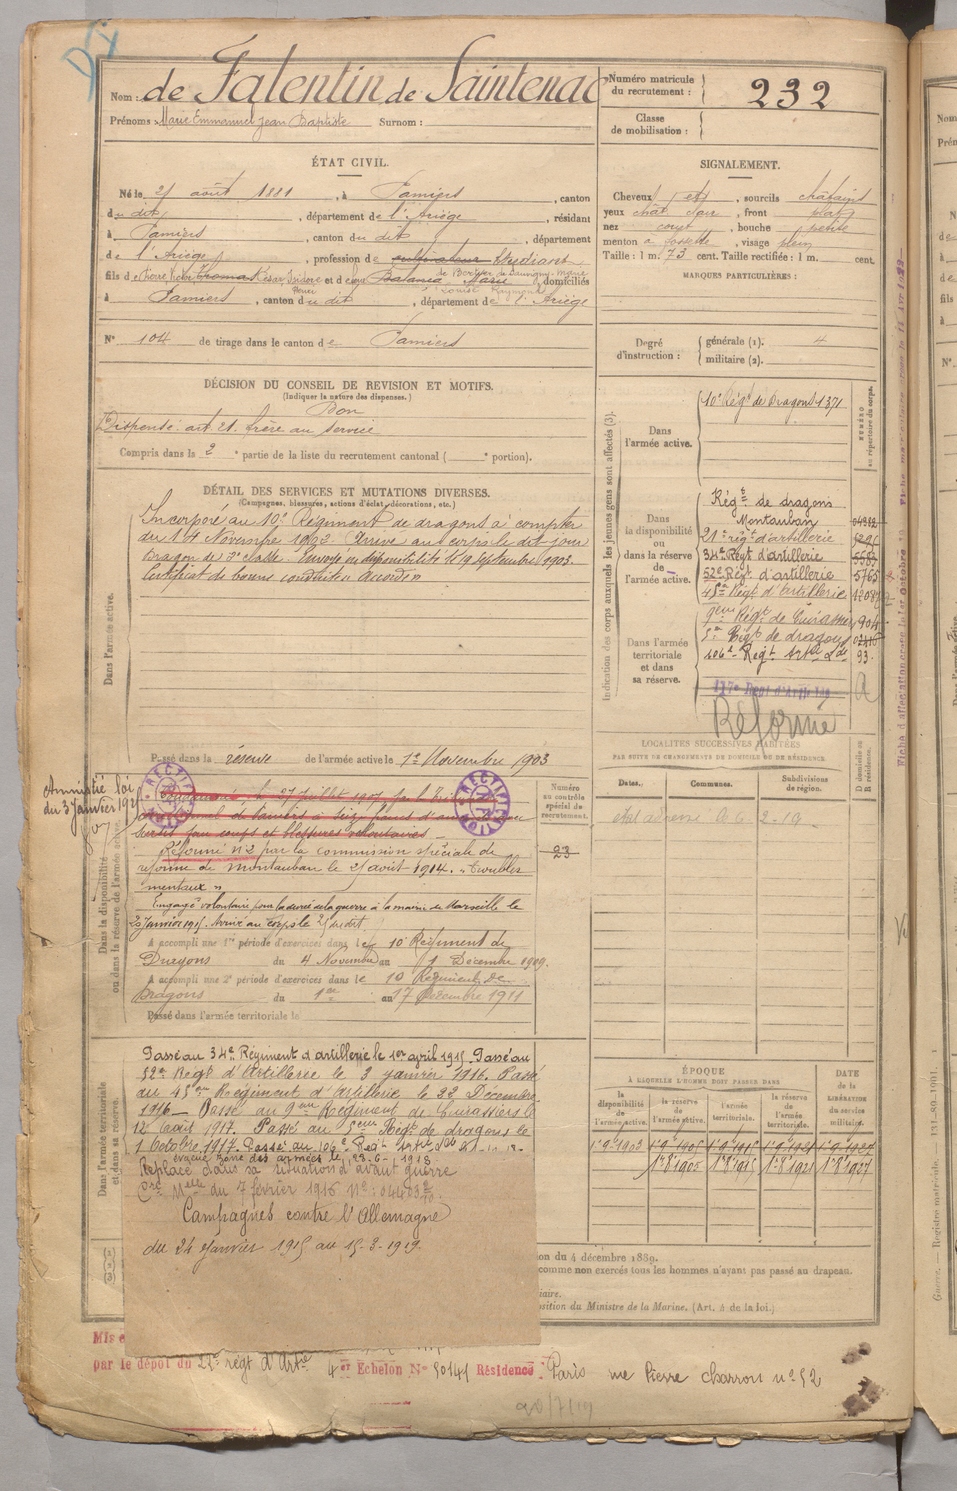 Nom : de Falentin de Saintenac
Prénoms : Marie Emmanuel Jean Baptiste Surnom :
Numéro matricule du recrutement : 232
Classe de mobilisation :
ÉTAT CIVIL.
Né le 25 août 1881, à Pamiers, canton
du dit, département de l'Ariège, résidant
à Pamiers, canton du dit, département
de l'Ariège, profession de cultivateur Etudiant
fils de Pierre Victor Thomas César Isidore et de feu Balanda Marie de Bertier de Sauvigny Marie Louise domiciliés
à Pamiers, canton du dit, département de l'Ariège
N° 104 de tirage dans le canton de Pamiers
SIGNALEMENT.
Cheveux et, sourcils châtains
yeux chât. clair, front plat
nez court, bouche petite
menton à fossette, visage plein
Taille : 1 m. 73 cent. Taille rectifiée : 1 m. cent.
MARQUES PARTICULIÈRES :
Degré d'instruction : générale (1). 4
militaire (2).
DÉCISION DU CONSEIL DE REVISION ET MOTIFS.
(Indiquer la nature des dispenses.)
Bon
Dispensé art. 21. frère au service
Compris dans la 2e partie de la liste du recrutement cantonal ( e portion).
DÉTAIL DES SERVICES ET MUTATIONS DIVERSES.
(Campagnes, blessures, actions d'éclat, décorations, etc.)
Dans l'armée active.
Incorporé au 10e Régiment de dragons à compter
du 14 Novembre 1902 Arrivé au corps le dit jour
Dragon de 2e classe. Envoyé en disponibilité le 19 septembre 1903.
Certificat de bonne conduite « Accordé »
Indication des corps auxquels les jeunes gens sont affectés (3).
NUMÉRO au répertoire du corps.
Dans l'armée active.
10e Rég' de Dragons 1371
Dans la disponibilité ou dans la réserve de l'armée active.
Rég' de dragons
Montauban
21e rég' d'artillerie
34e Rég' d'artillerie
52e Rég' d'artillerie 5765
45e Rég' d'artillerie
Dans l'armée territoriale et dans sa réserve.
9eme Rég' de Cuirassiers 904
5e Rég' de dragons
106e Reg' Artie Lde 93.
117e Regt d'Artie Lde
Réformé
Passé dans la réserve de l'armée active le 1er Novembre 1903
Amnistié loi
du 3 Janvier 1925
RECTIFICATION
RECTIFICATION
Condamné le 27 juillet 1905 par le Tribunal
de Pamiers à seize francs d'amende
sursis pour coups et blessures volontaires
Réformé n°2 par la commission spéciale de
réforme de Montauban le 25 août 1914. « Troubles
mentaux »
Engagé volontaire pour la durée de la guerre à la mairie de Marseille le
20 janvier 1915. Arrivé au corps le 25 du dit
A accompli une 1re période d'exercices dans le 10 Régiment de
Dragons du 4 Novembre au 1 Décembre 1909.
A accompli une 2e période d'exercices dans le 10 Régiment de
Dragons du 1er au 17 Décembre 1911
Passé dans l'armée territoriale le
Dans la disponibilité ou dans la réserve de l'armée active.
Numéro au contrôle spécial du recrutement.
23
LOCALITÉS SUCCESSIVES HABITÉES
PAR SUITE DE CHANGEMENTS DE DOMICILE OU DE RÉSIDENCE.
Dates. Communes. Subdivisions de région. D domicile ou R résidence.
état adressé le 6-2-19
Dans l'armée territoriale et dans sa réserve.
Passé au 34e Régiment d'artillerie le 1er avril 1915. Passé au
52e Régt d'Artillerie le 3 janvier 1916. Passé
au 45eme Régiment d'Artillerie le 22 Décembre
1916 — Passé au 9eme Régiment de Cuirassiers le
12 Août 1917. Passé au 5eme Régt de dragons le
1 Octobre 1917. Passé au 106e Regt
évacué zone des armées le 23-6-1918.
Replacé dans sa situation d'avant guerre
Cre Mlle du 7 février 1916 N°
Campagnes contre l'Allemagne
du 24 Janvier 1915 au 15-3-1919.
ÉPOQUE
À LAQUELLE L'HOMME DOIT PASSER DANS
la disponibilité de l'armée active. la réserve de l'armée active. l'armée territoriale. la réserve de l'armée territoriale. DATE de la LIBÉRATION du service militaire.
1er 9 1903
on du 4 décembre 1889.
comme non exercés tous les hommes n'ayant pas passé au drapeau.
iaire.
osition du Ministre de la Marine. (Art. 4 de la loi.)
Mis e
par le dépôt du 21e régt d'Artie 4er Echelon N° 50141 Résidence : Paris rue Pierre Charron n° 52
20/7/19
Guerre. — Registre matricule.